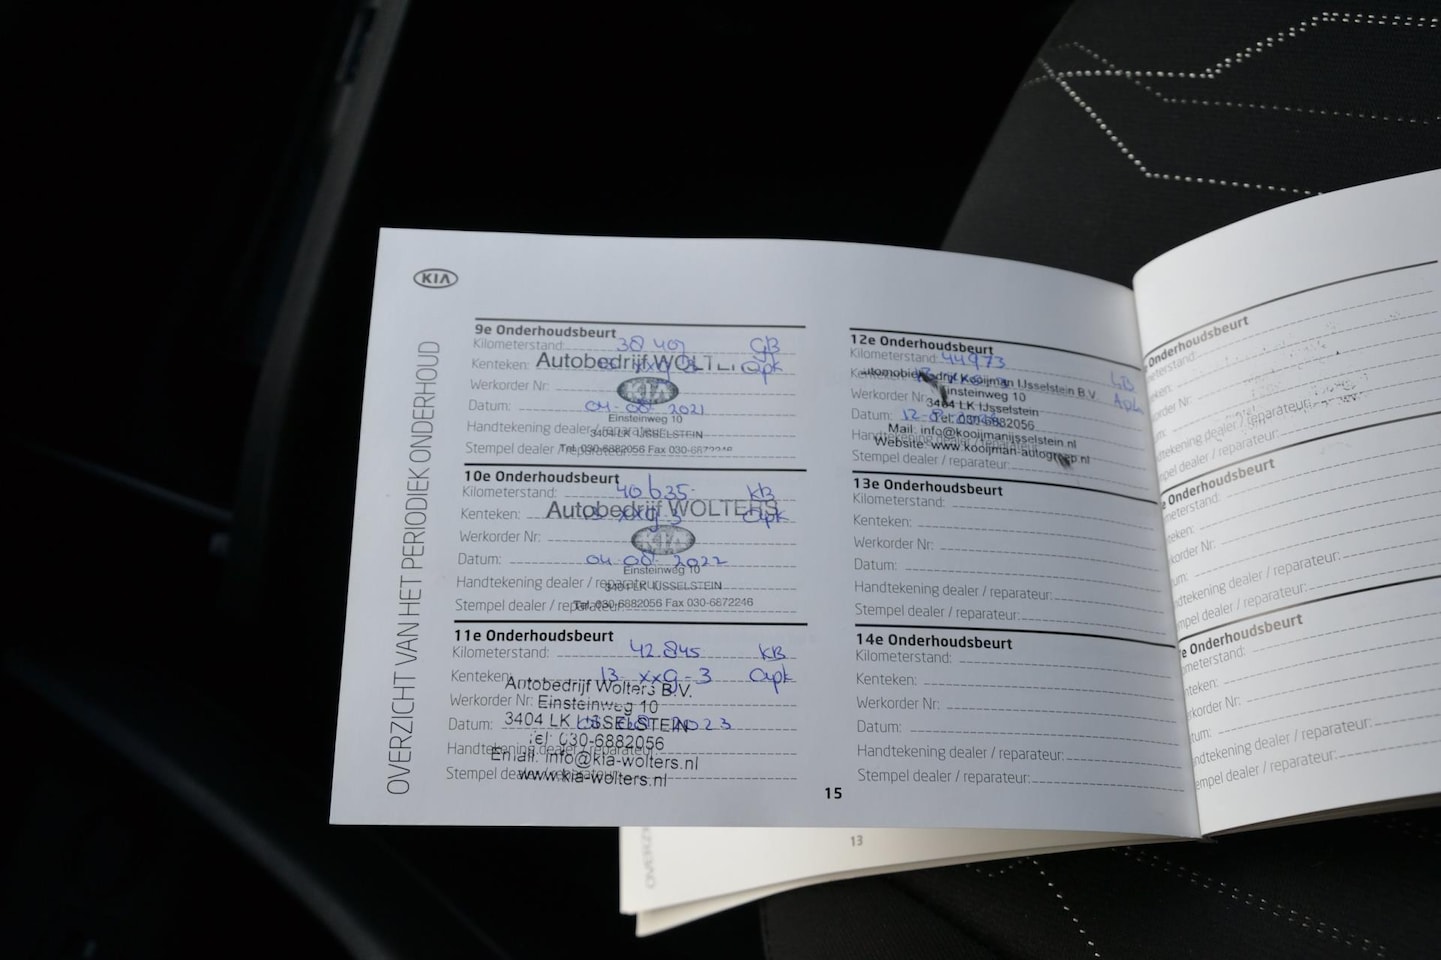 KIA
OVERZICHT VAN HET PERIODIEK ONDERHOUD
9e Onderhoudsbeurt
Kilometerstand: 38401 GB
Kenteken: Apk
Autobedrijf WOLT
KIA
Werkorder Nr:
Datum: 04-08-2021
Einsteinweg 10
Handtekening dealer / reparateur:
3404 LK IJSSELSTEIN
Stempel dealer / reparateur:
Tel. 030-6882056 Fax 030-6672246
10e Onderhoudsbeurt
Kilometerstand: 40635 KB
Autobedrijf WOLTERS
Kenteken: 13-xxg-3 apk
KIA
Werkorder Nr:
Datum: 04-08-2022
Einsteinweg 10
Handtekening dealer / reparateur:
3404 LK IJSSELSTEIN
Stempel dealer / reparateur:
Tel. 030-6882056 Fax 030-6672246
11e Onderhoudsbeurt
Kilometerstand: 42.845 KB
Kenteken: 13-xxg-3 apk
Autobedrijf Wolters B.V.
Werkorder Nr:
Einsteinweg 10
3404 LK IJSSELSTEIN
Datum: 2023
Tel: 030-6882056
Handtekening dealer / reparateur:
Email: info@kia-wolters.nl
Stempel dealer / reparateur:
www.kia-wolters.nl
12e Onderhoudsbeurt
Kilometerstand: 44973
Kenteken:
Automobielbedrijf Kooijman IJsselstein B.V.
Werkorder Nr:
Einsteinweg 10
3404 LK IJsselstein
Datum: 12-8
Tel: 030-6882056
Mail: info@kooijmanijsselstein.nl
Handtekening dealer / reparateur:
Website: www.kooijman-autogroep.nl
Stempel dealer / reparateur:
13e Onderhoudsbeurt
Kilometerstand:
Kenteken:
Werkorder Nr:
Datum:
Handtekening dealer / reparateur:
Stempel dealer / reparateur:
14e Onderhoudsbeurt
Kilometerstand:
Kenteken:
Werkorder Nr:
Datum:
Handtekening dealer / reparateur:
Stempel dealer / reparateur:
15
Onderhoudsbeurt
dealer / reparateur:
dealer / reparateur:
Onderhoudsbeurt
dealer / reparateur:
dealer / reparateur:
Onderhoudsbeurt
dealer / reparateur:
dealer / reparateur:
13